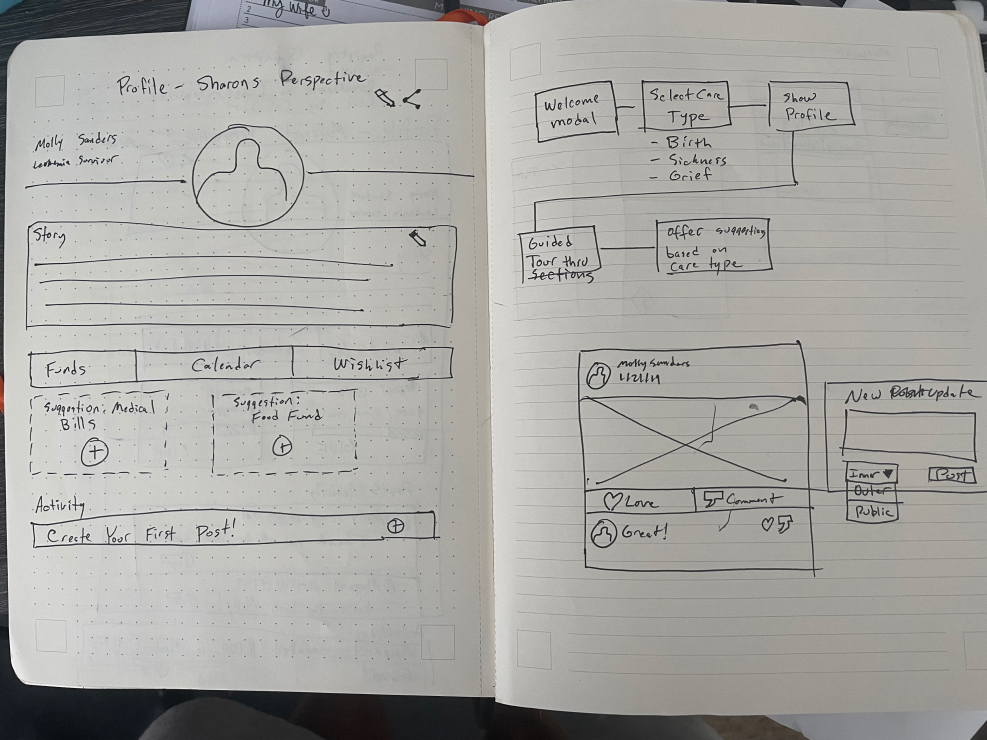 my wife
Profile - Sharons Perspective
Molly Sanders
Leukemia Survivor
Story
Funds
Calendar
Wishlist
Suggestion: Medical
Bills
Suggestion:
Food Fund
Activity
Create Your First Post!
Welcome
modal
Select Care
Type
- Birth
- Sickness
- Grief
Show
Profile
Guided
Tour thru
Sections
offer suggestion
based on
care type
Molly Sanders
Love
Comment
Great!
New Update
Inner
Outer
Public
Post